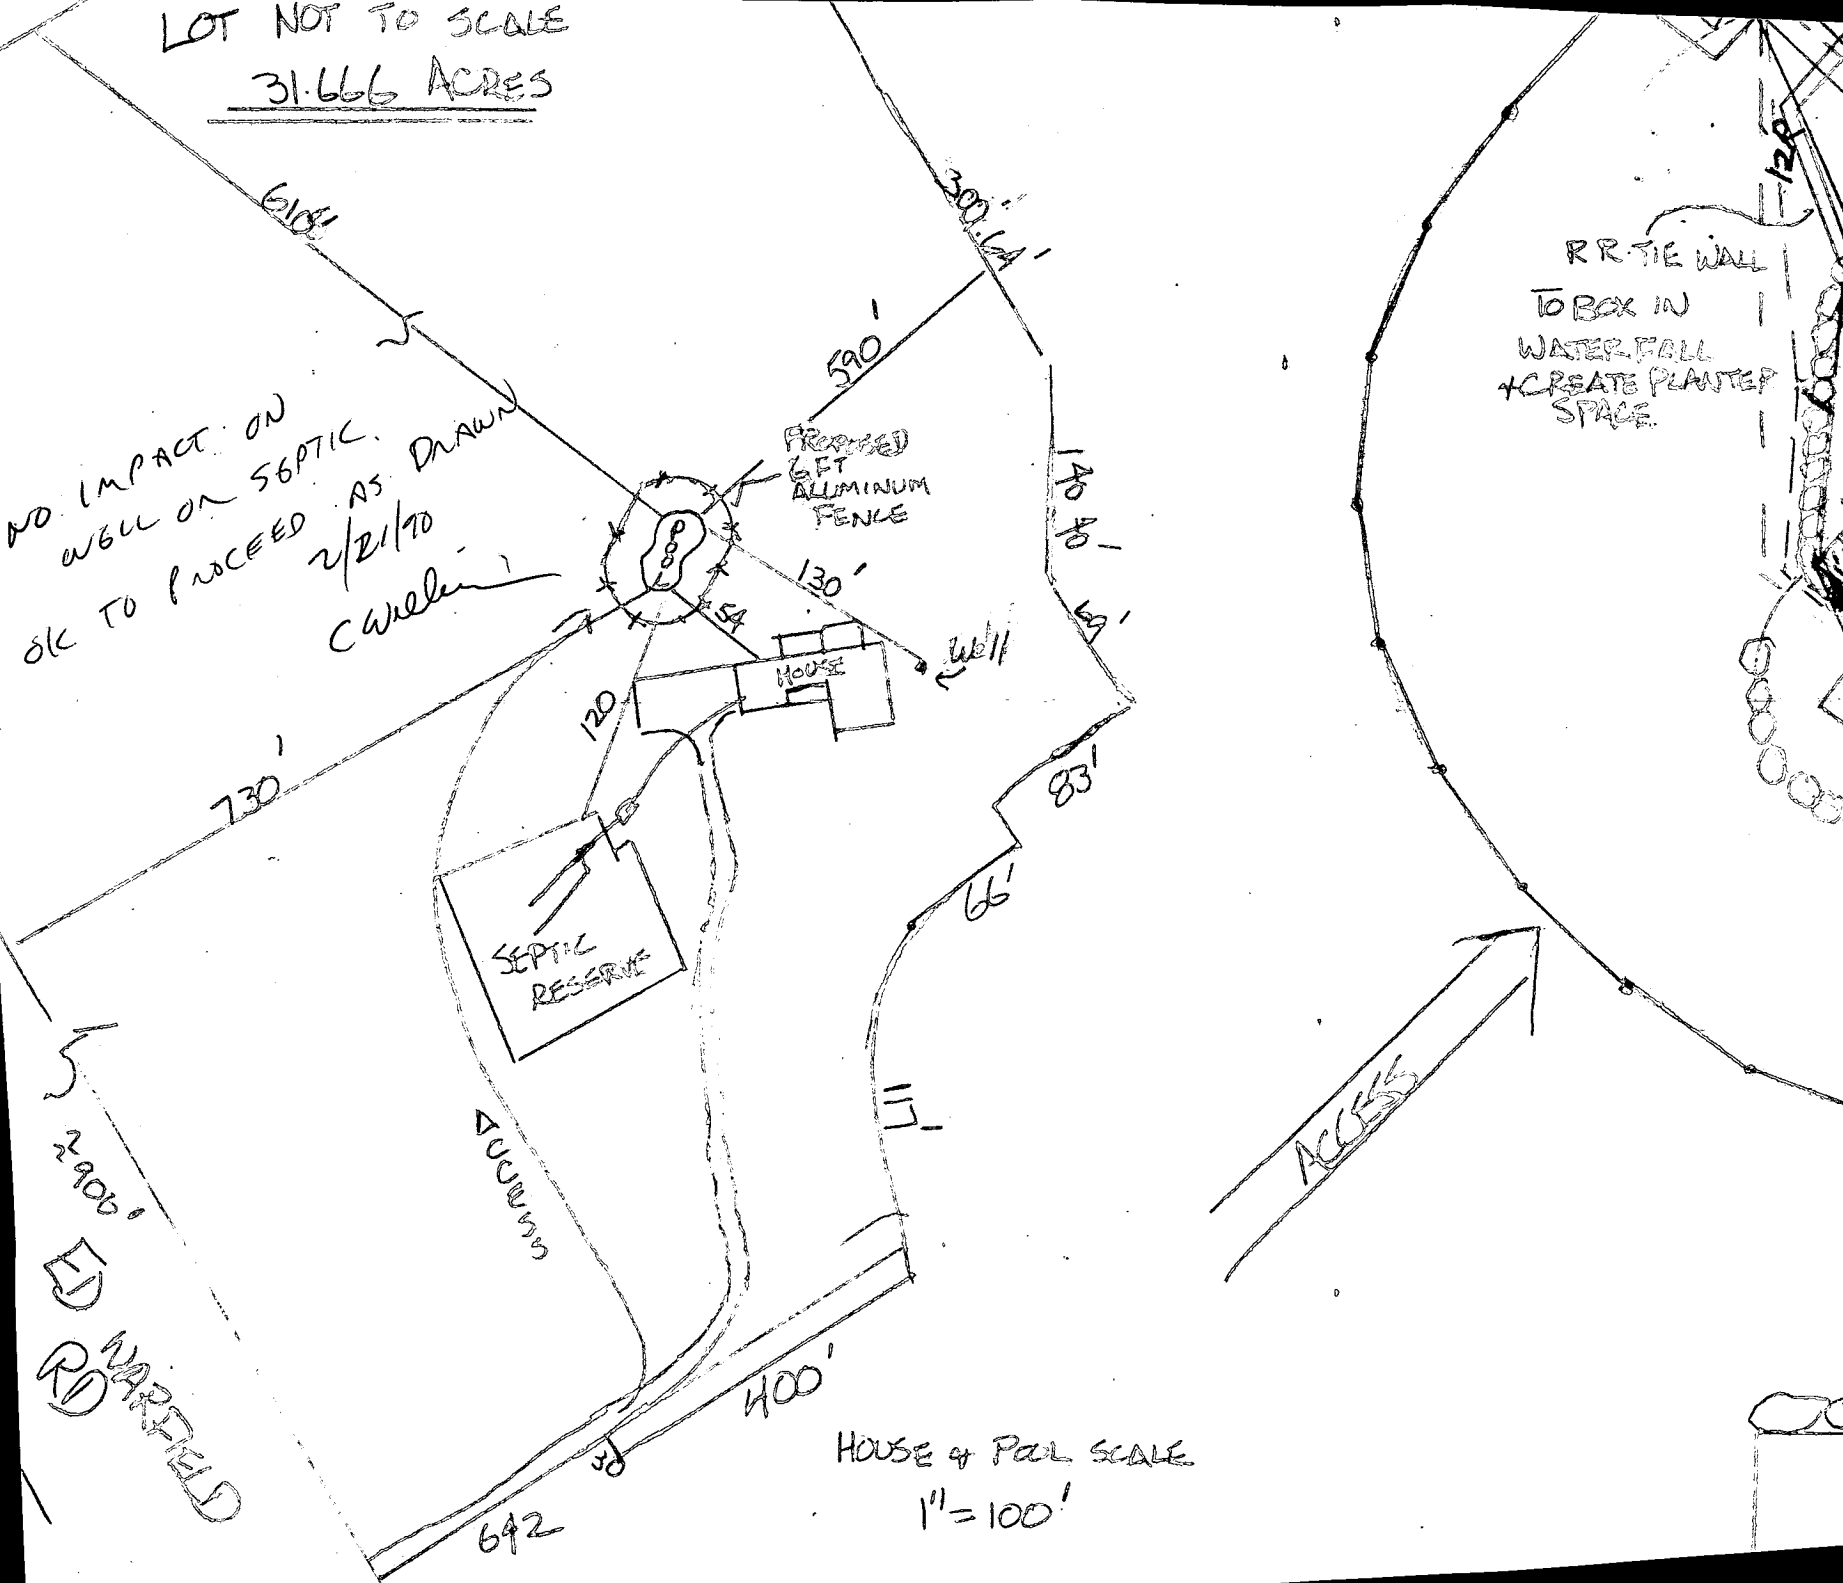 LOT NOT TO SCALE
31.666 ACRES
610'
300.64'
590'
NO IMPACT ON
WELL OR SEPTIC.
OK TO PROCEED AS DRAWN
2/21/90
PROPOSED
6 FT
ALUMINUM
FENCE
POOL
130'
54
HOUSE
Well
120
730'
83'
66'
SEPTIC
RESERVE
117'
ACCESS
2900'
WARFIELD
RD
400'
30
642
HOUSE & POOL SCALE
1"=100'
R R. TIE WALL
TO BOX IN
WATERFALL
+ CREATE PLANTER
SPACE
12R
ACCESS